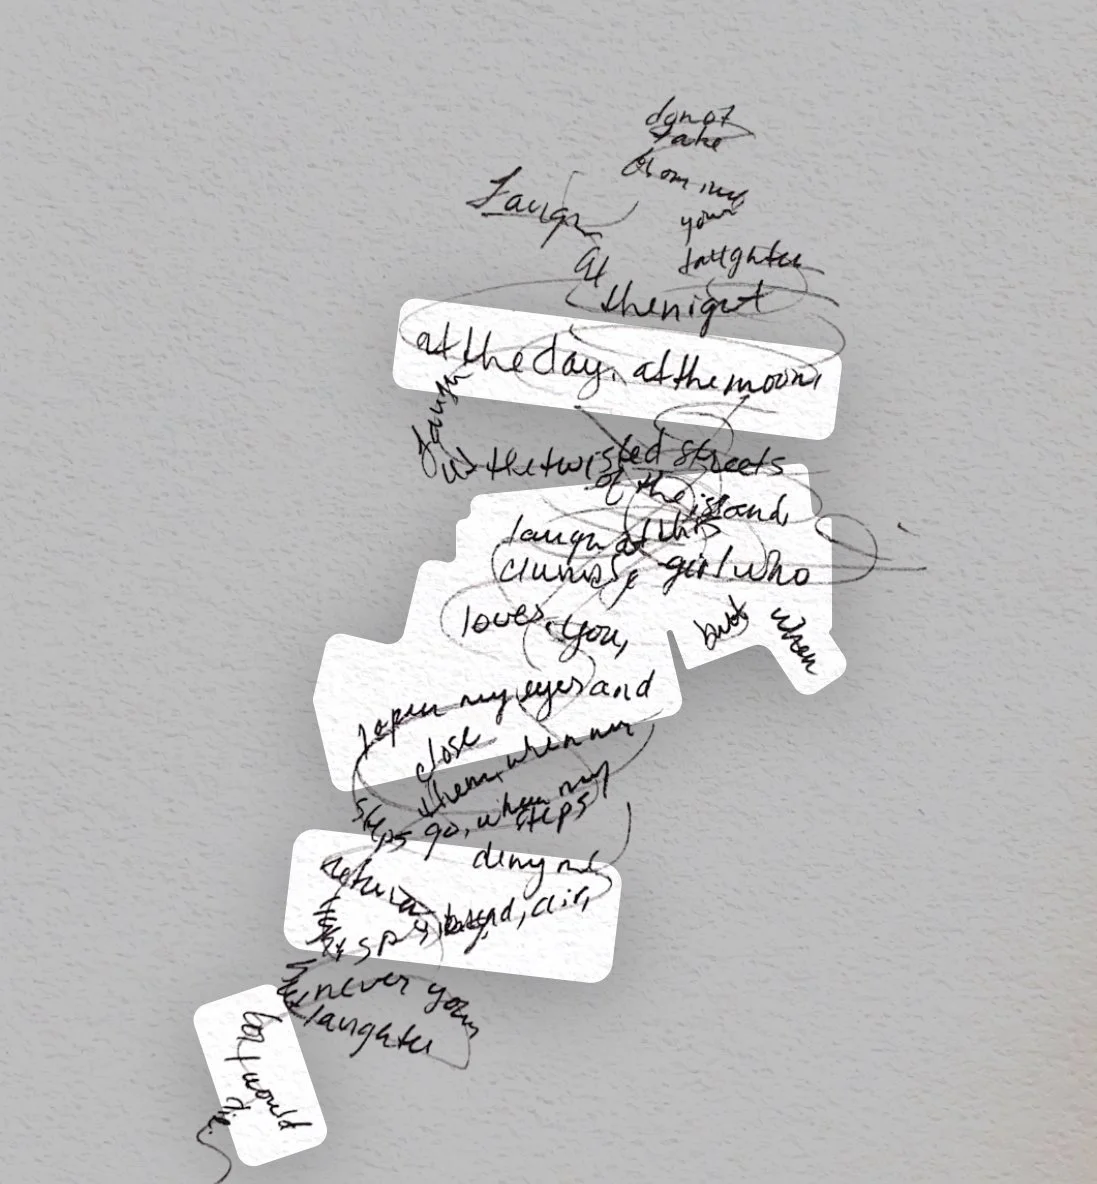 do not
take
from my
your
laughter
Laugh
at
the night
at the day, at the moon,
laugh
at the twisted streets
of the island,
laugh at this
clumsy girl who
loves you,
but when
I open my eyes and
close
them, when my
steps go, when my
steps
return
deny me
bread, air,
light, spring,
never your
laughter
for I would
die.